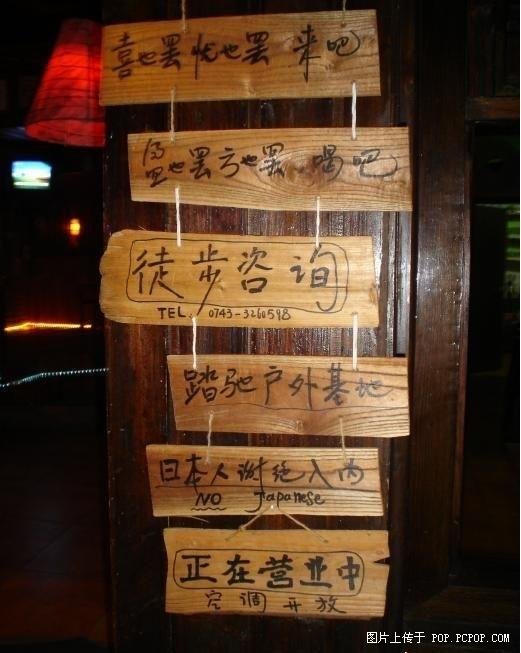 喜也罢忧也罢 来吧
盈也罢亏也罢 喝吧
徒步咨询
TEL. 0743-3260598
踏驰户外基地
日本人谢绝入内
NO Japanese
正在营业中
空调开放
图片上传于 POP.PCPOP.COM